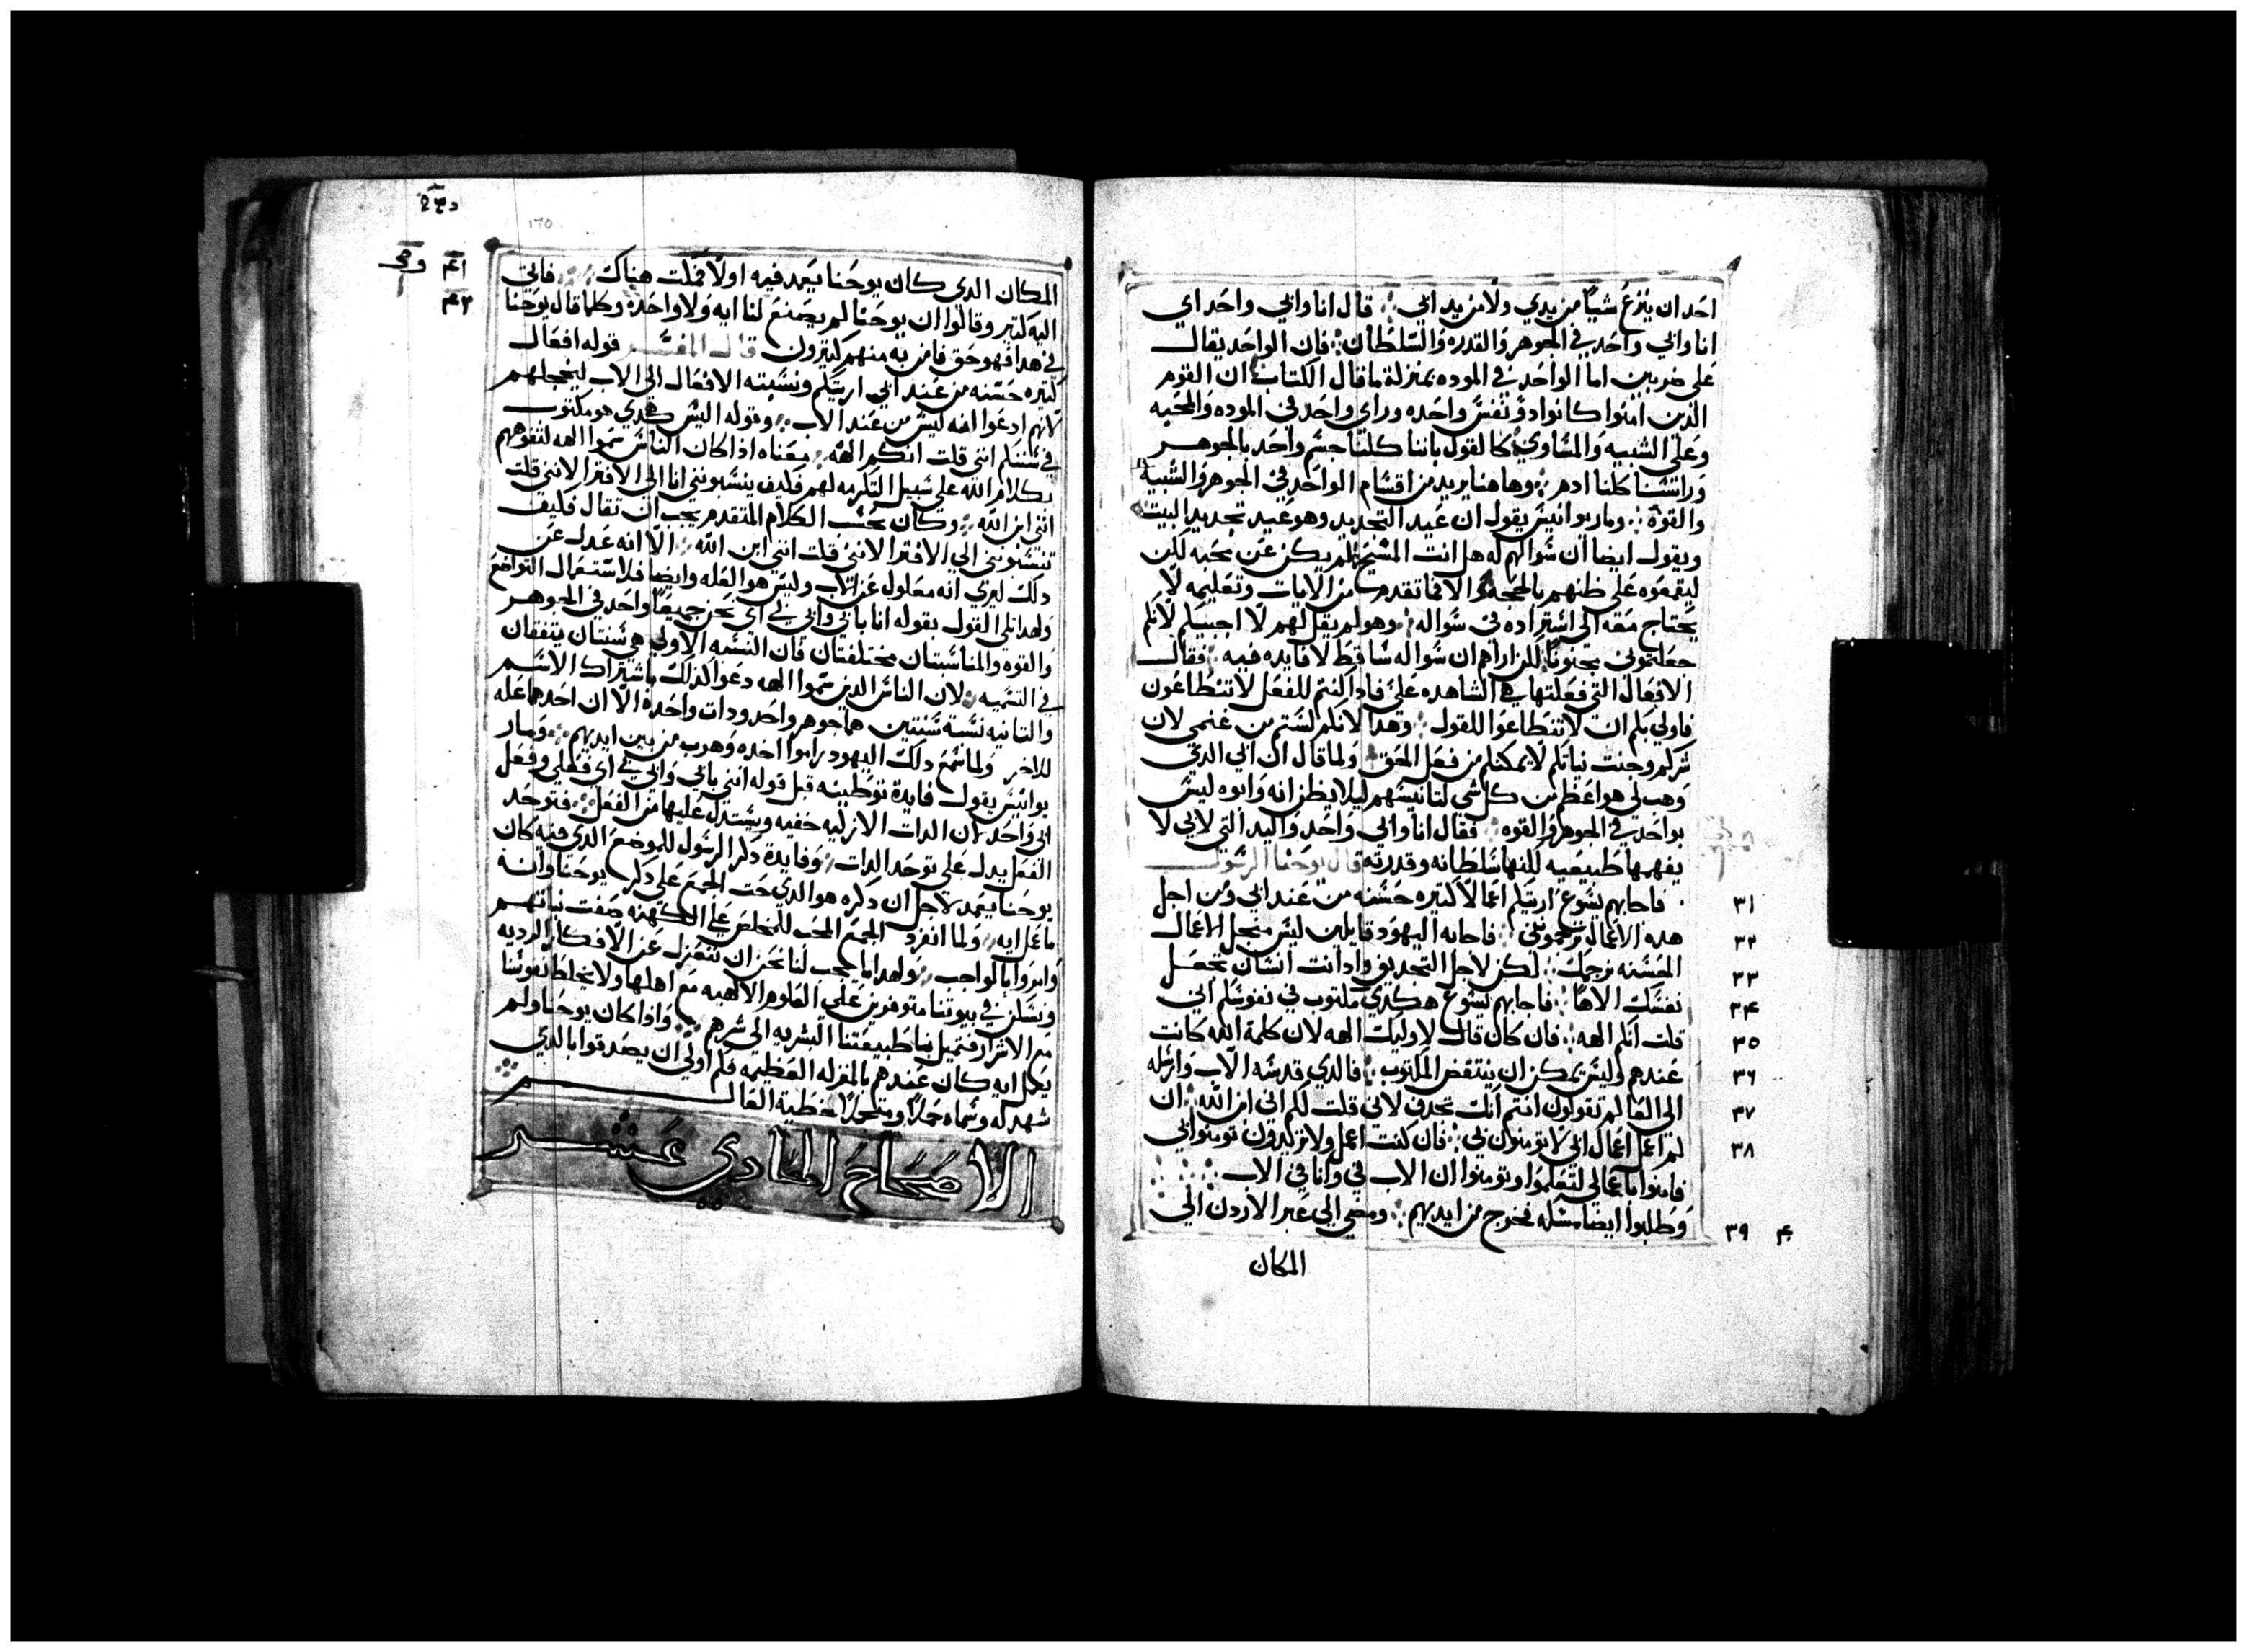 احدان ينزع شيًا من يدي ولا من يد ابي ؛ قال انا وابي واحد اي
انا وابي واحد في الجوهر والقدره والسلطان ؛ فان الواحد يقال
على ضربين اما الواحد في الموده بمنزلة ما قال الكتاب ان القوم
الذين امنوا كانوا دو نفس واحده وراي واحد في الموده والمحبه
وعلى الشبيه والمساوي كالقول باننا كلنا جسم واحد بالجوهر
وراسنا كلنا ادم ؛ وهاهنا يريد من اقسام الواحد في الجوهر والشبيه
والقوة ؛ ومار يوانيس يقول ان عيد التجديد وهو عيد تجديد البيت
ويقول ايضا ان سوالهم له هل انت المسيح لم يكن عن محبه لكن
ليقفوه على ظنهم بالحجه والا فما تقدم من الايات وتعليمه لا
يحتاج معه الى استزاده في سواله ؛ وهو لم يقل لهم لا اجيبكم لانكم
جعلتموني مجنونًا لكن اراهم ان سواله ساقط لا فايده فيه ؛ فقال
الافعال التي فعلتها هي الشاهده علي فادا كنتم للفعل لا تنطاعون
فاولي بكم ان لا تنطاعوا للقول ؛ وهدا لانكم لستم من غنمي لان
شركم وخبث نياتكم لا يمكنكم من فعل الحق ؛ ولما قال ان ابي الدي
وهب لي هو اعظم من كل شي لتانيسهم ليلا يظن انه وابوه ليس
بواحد في الجوهر والقوه ؛ فقال انا وابي واحد واليد التي لابي لا
يفهمها طبيعيه لكنها سلطانه وقدرته قال يوحنا الرسول
٣١ فاجابهم يسوع اريتكم اعمالًا كتيره حسنه من عند ابي ومن اجل
٣٢ هده الاعمال ترجموني ؛ فاجابه اليهود قايلين ليس من اجل الاعمال
٣٣ الحسنه نرجمك ؛ لكن لاجل التجديف واد انت انسان تجعل
٣٤ نفسك الاهًا ؛ فاجابهم يسوع هكدي مكتوب في نموسكم اني
٣٥ قلت انكم الهه ؛ فان كان قال لاوليك الهه لان كلمة الله كانت
٣٦ عندهم وليس يمكن ان ينتقض المكتوب ؛ فالدي قدسه الاب وارسله
٣٧ الى العالم تقولون انتم انك تجدف لاني قلت لكم اني ابن الله ؛ ان
٣٨ لم اعمل اعمال ابي لا تومنون بي ؛ فان كنت اعمل ولا تريدون تومنوا بي
فامنوا باعمالي لتعلموا وتومنوا ان الاب في وانا في الاب
٣٩ وطلبوا ايضا مسكه فخرج من ايديهم ؛ ومضى الى عبر الاردن الى
المكان
١٦٥
المكان الدي كان يوحنا يعمد فيه اولًا فمكت هناك ؛ فاتى
اليه كتير وقالوا ان يوحنا لم يصنع لنا ايه ولا واحده وكلما قال يوحنا
في هدا فهو حق فامن به منهم كتيرون قال المفسر قوله افعال
كتيره حسنه من عند ابي اريتكم ونسبته الافعال الى الاب ليخجلهم
لانهم ادعوا انه ليس من عند الاب ؛ وقوله اليس هكدي هو مكتوب
في سننكم انني قلت انكم الهه ؛ معناه ادا كان الناس سموا الهه لتفوههم
بكلام الله على سبيل التكرمه لهم فكيف ينسبونني انا الى الافترا لانني قلت
انني ابن الله ؛ وكان بحسب الكلام المتقدم يجب ان تقال فكيف
تنسبونني الى الافترا لانني قلت انني ابن الله ؛ الا انه عدل عن
دلك ليري انه معلول عن الاب وليس هو العله وايضا فلاستعمال التواضع
ولهدا تلي القول بقوله انا بابي وابي بي اي نحن جميعًا واحد في الجوهر
والقوه والمناسبتان مختلفتان فان النسبه الاولى هي شيئان يتفقان
في التسميه ؛ لان الناس الدين سموا الهه دعوا لدلك باشتراك الاسم
والتانيه نسبة شيئين هما جوهر واحد ودات واحدة الا ان احدهما عله
للاخر ولما سمع دلك اليهود راموا اخده وهرب من بين ايديهم ؛ ومار
يوانيس يقول فايدة توطيته قبل قوله انني بابي وابي بي اي فعلي وفعل
ابي واحد لان الدات الازليه خفيه ويستدل عليها من الفعل ؛ فتوحد
الفعل يدل على توحد الدات ؛ وفايدة دكر الرسول للموضع الدي فيه كان
يوحنا يعمد لاجل ان دكره هو الدي حت الجمع على دكر يوحنا وانه
ما عمل ايه ؛ ولما انفرد الجمع المحب للمخلص عن الكهنه صفت نياتهم
وامنوا بالواجب ؛ ولهدا ما يجب لنا نحن ان ننعزل عن الافكار الرديه
ونسكن في بيوتنا متوفرين على العلوم الالهيه مع اهلها ولا نخلط نفوسنا
مع الاشرار فتميل بنا طبيعتنا البشريه الى شرهم ؛ وادا كان يوحنا ولم
يعمل ايه كان عندهم بالمنزله العظيمه فكم اولى ان يصدقوا بالدي
شهد له وسماه حملًا ومتحملًا خطية العالم
الاصحاح الحادي عشر